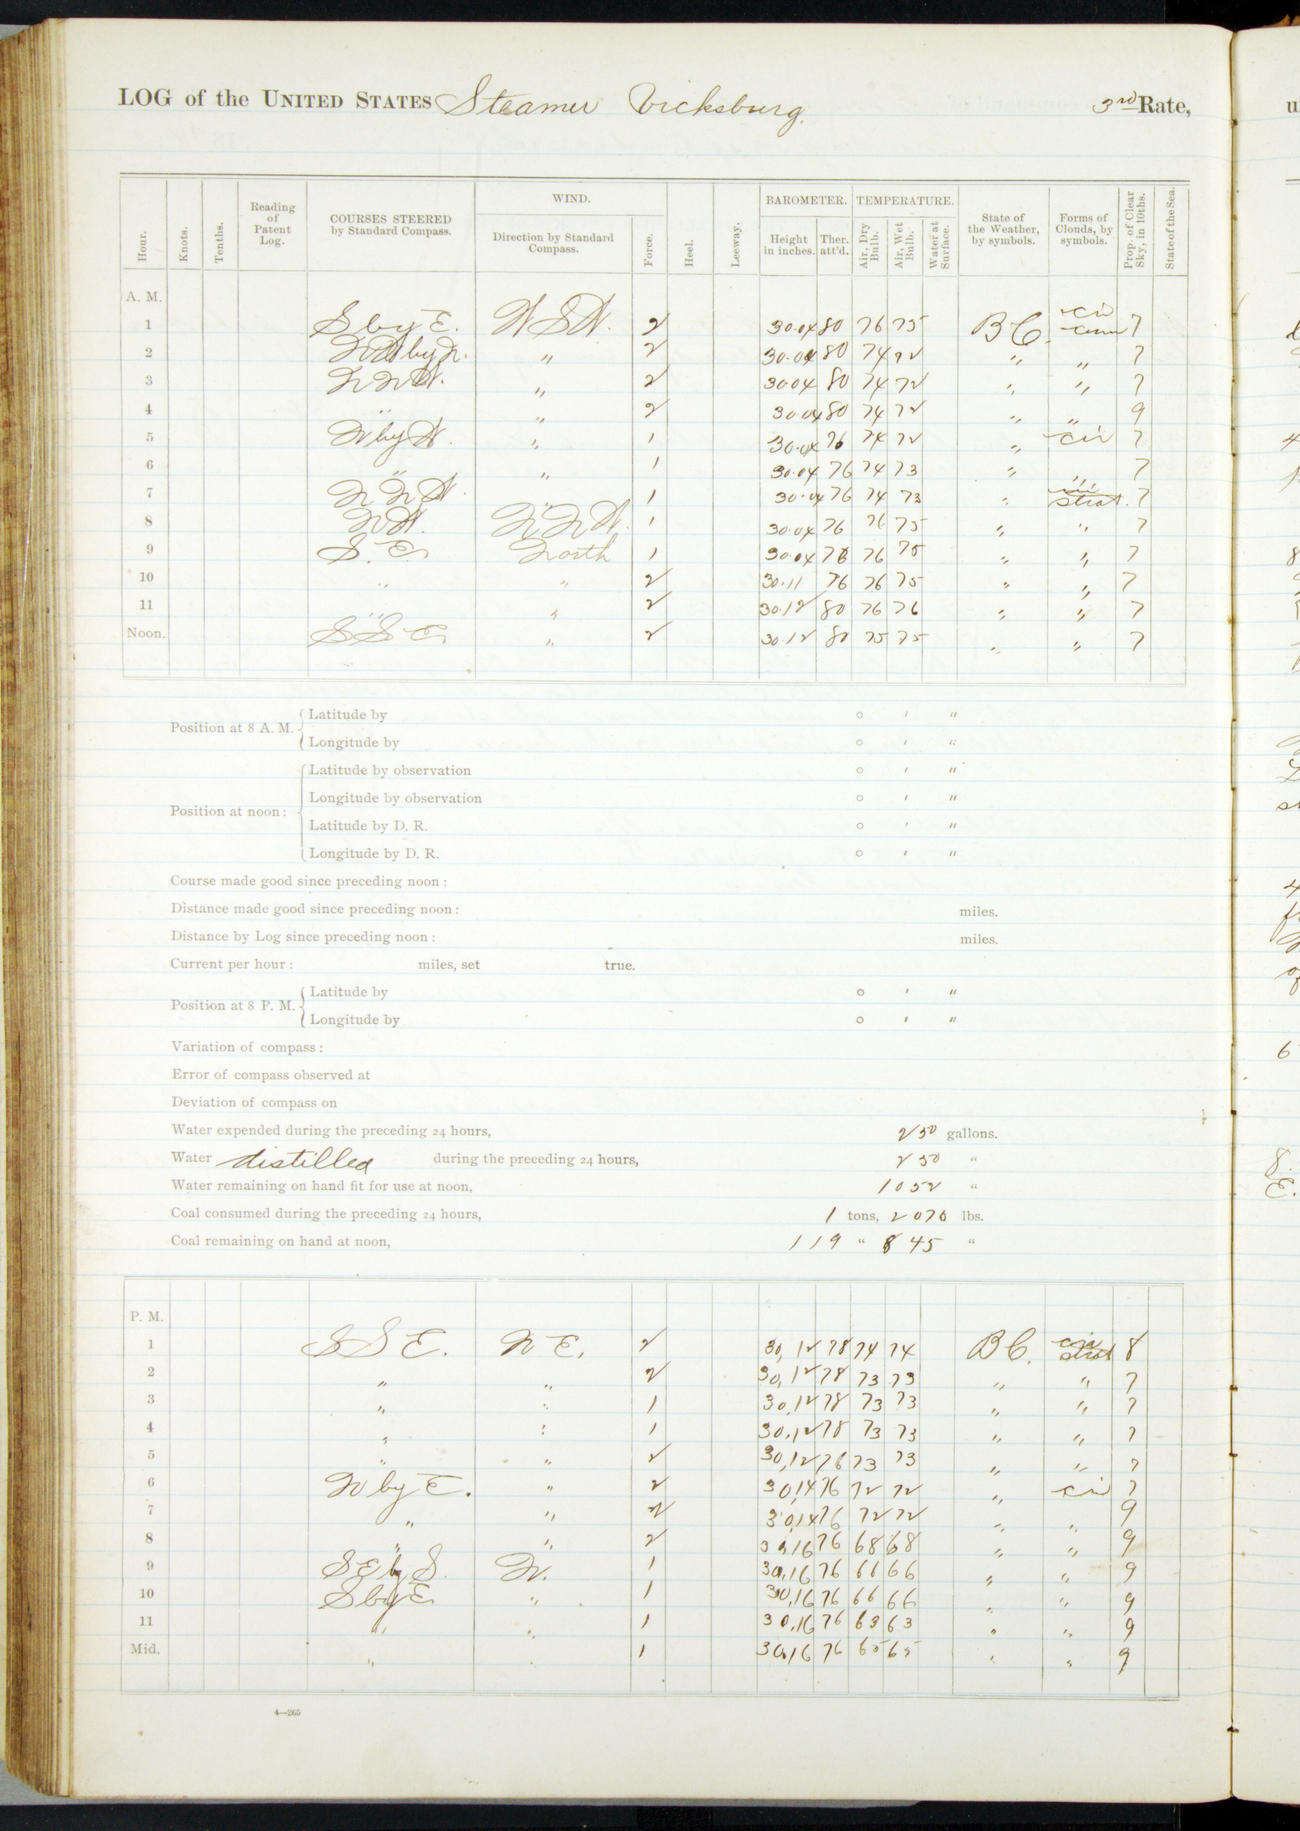 LOG of the UNITED STATES Steamer Vicksburg. 3rd Rate,
Hour. Knots. Tenths. Reading of Patent Log. COURSES STEERED by Standard Compass. WIND. Direction by Standard Compass. Force. Heel. Leeway. BAROMETER. Height in inches. Ther. att'd. TEMPERATURE. Air, Dry Bulb. Air, Wet Bulb. Water at Surface. State of the Weather, by symbols. Forms of Clouds, by symbols. Prop. of Clear Sky, in 10ths. State of the Sea.
A. M.
1 S by E. WSW. 2 30.04 80 76 75 BC. cir cum 7
2 NW by N. " 2 30.04 80 74 72 " " 7
3 NNW. " 2 30.04 80 74 72 " " 7
4 " " 2 30.04 80 74 72 " " 9
5 N by W. " 1 30.04 76 74 72 " cir 7
6 " " 1 30.04 76 74 73 " " 7
7 NNW. " 1 30.04 76 74 73 " cir strat. 7
8 NW. NNW. 1 30.04 76 76 75 " " 7
9 S. E. North 1 30.04 76 76 75 " " 7
10 " " 2 30.11 76 76 75 " " 7
11 " " 2 30.12 80 76 76 " " 7
Noon. SSE " 2 30.12 80 75 75 " " 7
Position at 8 A. M. Latitude by ° ' "
Longitude by ° ' "
Position at noon: Latitude by observation ° ' "
Longitude by observation ° ' "
Latitude by D. R. ° ' "
Longitude by D. R. ° ' "
Course made good since preceding noon:
Distance made good since preceding noon: miles.
Distance by Log since preceding noon: miles.
Current per hour: miles, set true.
Position at 8 P. M. Latitude by ° ' "
Longitude by ° ' "
Variation of compass:
Error of compass observed at
Deviation of compass on
Water expended during the preceding 24 hours, 250 gallons.
Water distilled during the preceding 24 hours, 250 "
Water remaining on hand fit for use at noon, 1052 "
Coal consumed during the preceding 24 hours, 1 tons, 2070 lbs.
Coal remaining on hand at noon, 119 " 845 "
P. M.
1 SSE. NE. 2 30,12 78 74 74 BC. cir strat 8
2 " " 2 30,12 78 73 73 " " 7
3 " " 1 30,12 78 73 73 " " 7
4 " " 1 30,12 78 73 73 " " 7
5 " " 2 30,12 76 73 73 " " 7
6 N by E. " 2 30,14 76 72 72 " cir 7
7 " " 2 30,14 76 72 72 " " 9
8 " " 2 30,16 76 68 68 " " 9
9 SE by S. N. 1 30,16 76 66 66 " " 9
10 S by E " 1 30,16 76 66 66 " " 9
11 " " 1 30,16 76 63 63 " " 9
Mid. " " 1 30,16 76 65 65 " " 9
4—265